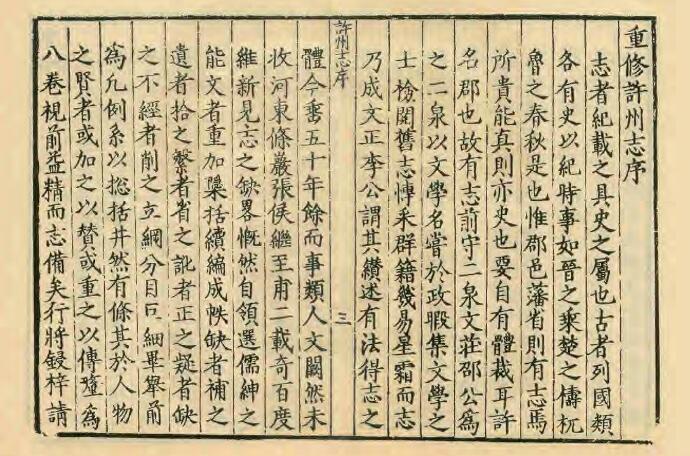 重修許州志序
志者紀載之具史之屬也古者列國類
各有史以紀時事如晉之乘楚之檮杌
魯之春秋是也惟郡邑藩省則有志焉
所貴能真則亦史也要自有體裁耳許
名郡也故有志前守二泉文莊邵公為
之二泉以文學名嘗於政暇集文學之
士檢閱舊志博采群籍幾易星霜而志
乃成文正李公謂其纘述有法得志之
許州志序
三
體今舊五十年餘而事類人文闕然未
收河東條巖張侯繼至甫二載奇百度
維新見志之缺畧慨然自領選儒紳之
能文者重加檃括續編成帙缺者補之
遺者拾之繁者省之訛者正之疑者缺
之不經者削之立綱分目巨細畢舉前
為凡例系以総括井然有條其於人物
之賢者或加之以賛或重之以傳壇為
八卷視前益精而志備矣行將鋟梓請